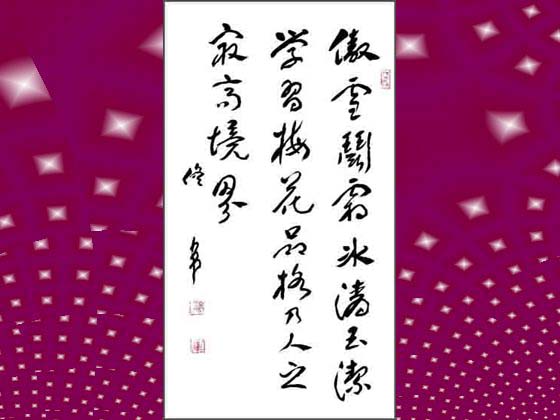 傲雪鬪霜冰清玉潔
学習梅花品格乃人之
最高境界